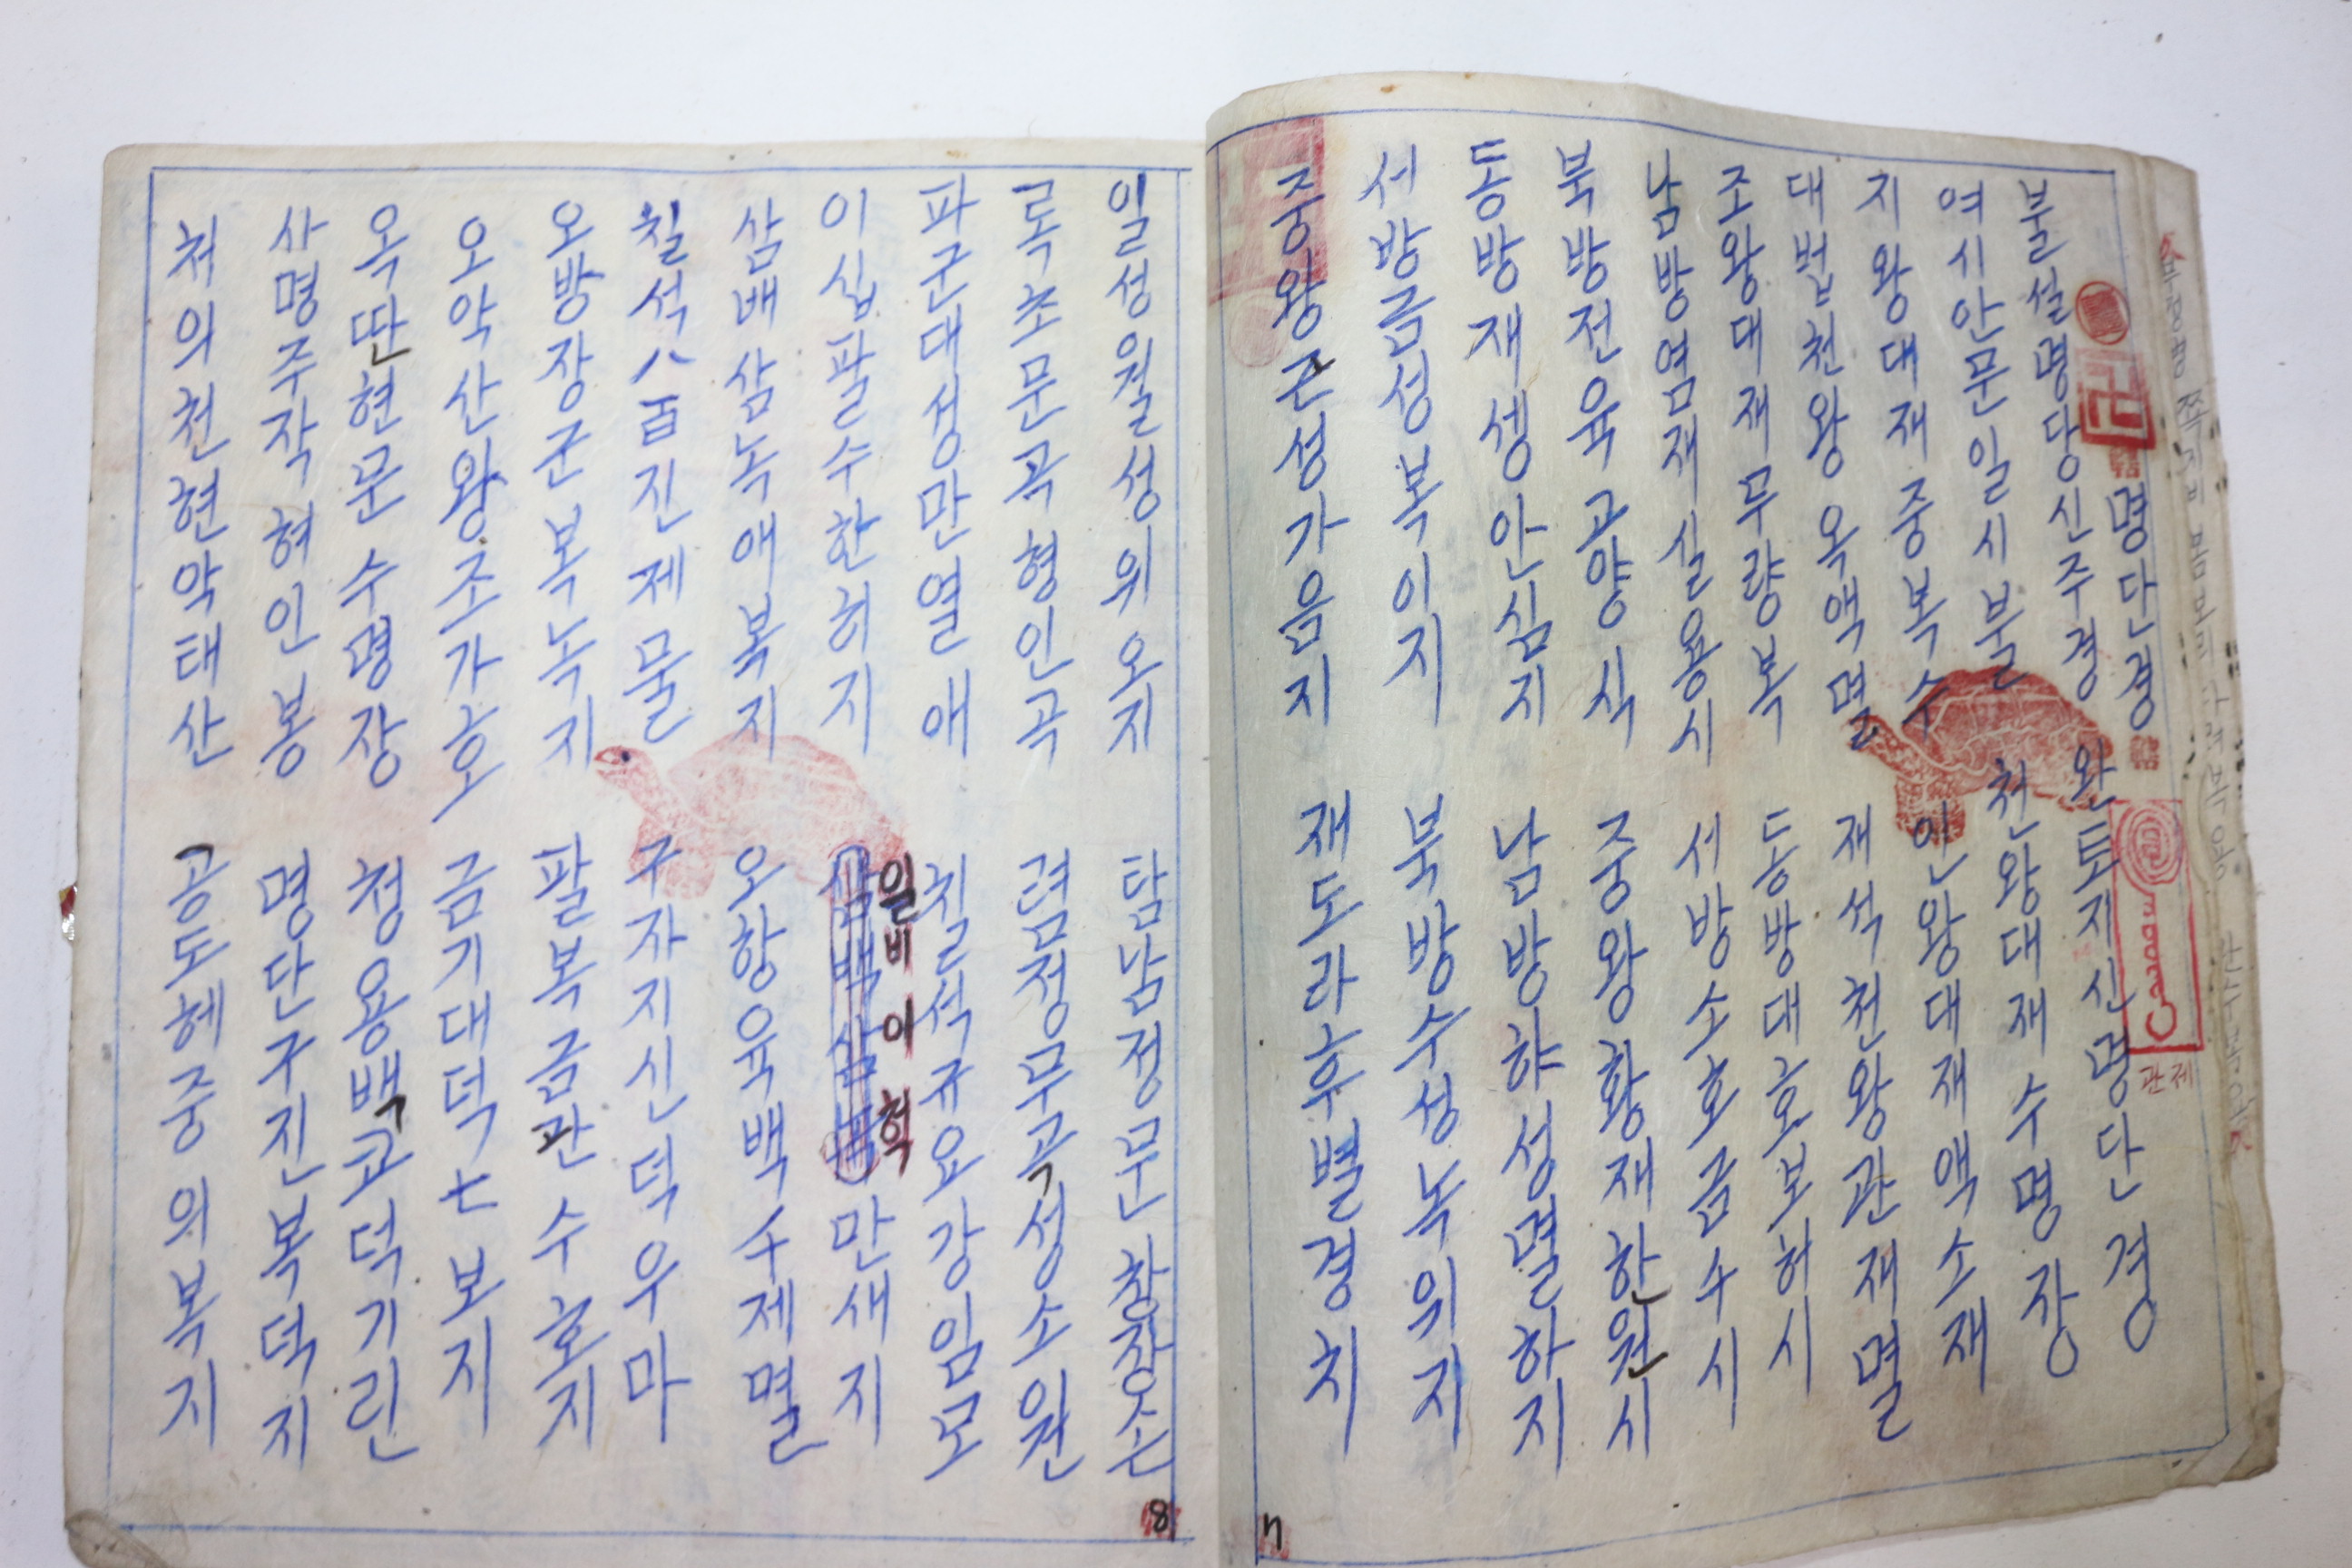 명단경 완토지신명단경
불설명당신주경 천왕대재수명장
여시안문일시불 인왕대재액소재
지왕대재중복수 재석천왕관재멸
대범천왕옥액멸 동방대호보허시
조왕대재무량복 서방소호금수시
남방염재실용시 중왕황재한원시
북방전육고양식 남방햐성멸하지
동방재셍안심지 북방수성녹위지
서방금성복이지 재도라후별경치
중왕근성가음지
관제
7
일성일월성위오지 탐남정문창장손
록조문곡형인곡 렴정무곡성소원
파군대성만열애 칠석규요강임모
이십팔수한허지 일비이혁 만새지
삼배삼녹애복지 오향육백수제멸
칠석八섭진제물 구자지신덕우마
오방장군복녹지 팔복금관수호지
오악산왕조가호 금기대덕七보지
옥딴현문수명장 청용백교덕기린
사명주작혀인봉 명단구진복덕지
처의천현악태산 공도헤중의복지
8